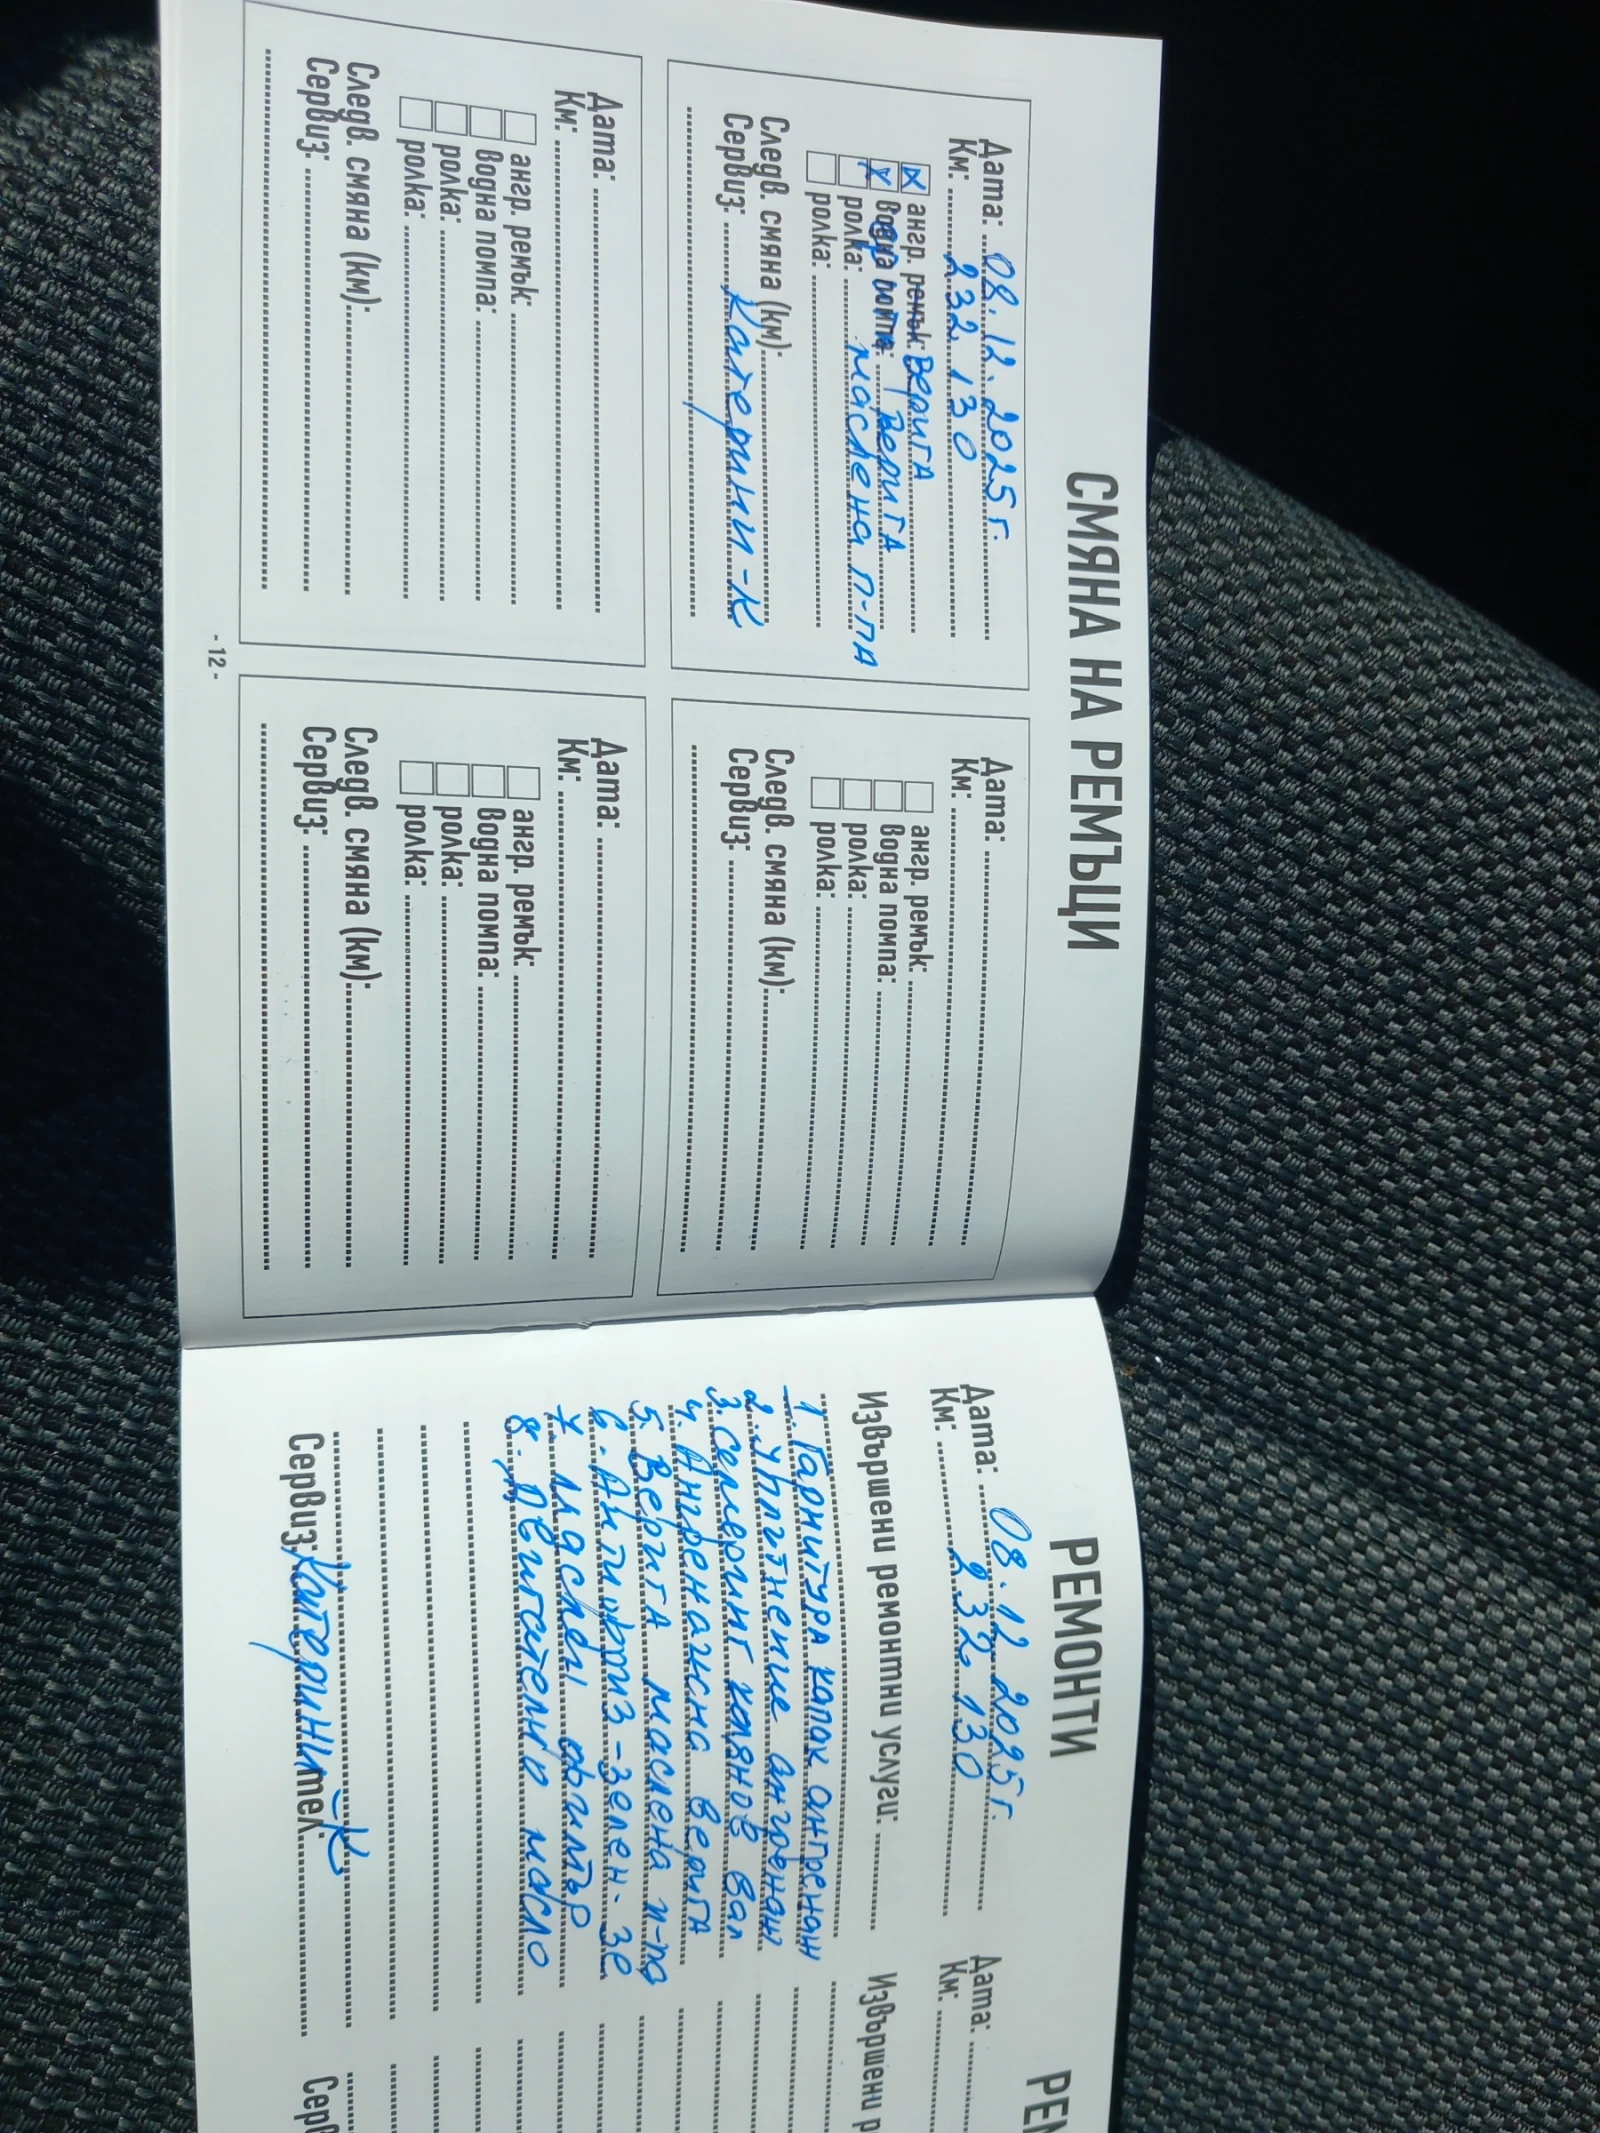 СМЯНА НА РЕМЪЦИ
Дата: 08.12.2025г.
Км: 232.130
ангр. ремък: ВЕРИГА
водна помпа: ВЕРИГА
ролка: маслена п-па
ролка:
След. смяна (км):
Сервиз: Катерини-К
Дата:
Км:
ангр. ремък:
водна помпа:
ролка:
ролка:
След. смяна (км):
Сервиз:
Дата:
Км:
ангр. ремък:
водна помпа:
ролка:
ролка:
След. смяна (км):
Сервиз:
Дата:
Км:
ангр. ремък:
водна помпа:
ролка:
ролка:
След. смяна (км):
Сервиз:
- 12 -
РЕМОНТИ
Дата: 08.12.2025г
Км: 232.130
Извършени ремонтни услуги:
1 Гарнитура капак ангренаж
2. Уплътнение ангренаж
3. Семеринг колянов вал
4. Ангренажна верига
5. Верига маслена п-па
6. Антифриз-зелен-
7. Маслен филтър
8. Двигателно масло
Сервиз: Катерини-К тел.:
РЕМ
Дата:
Км:
Извършени р
Серв